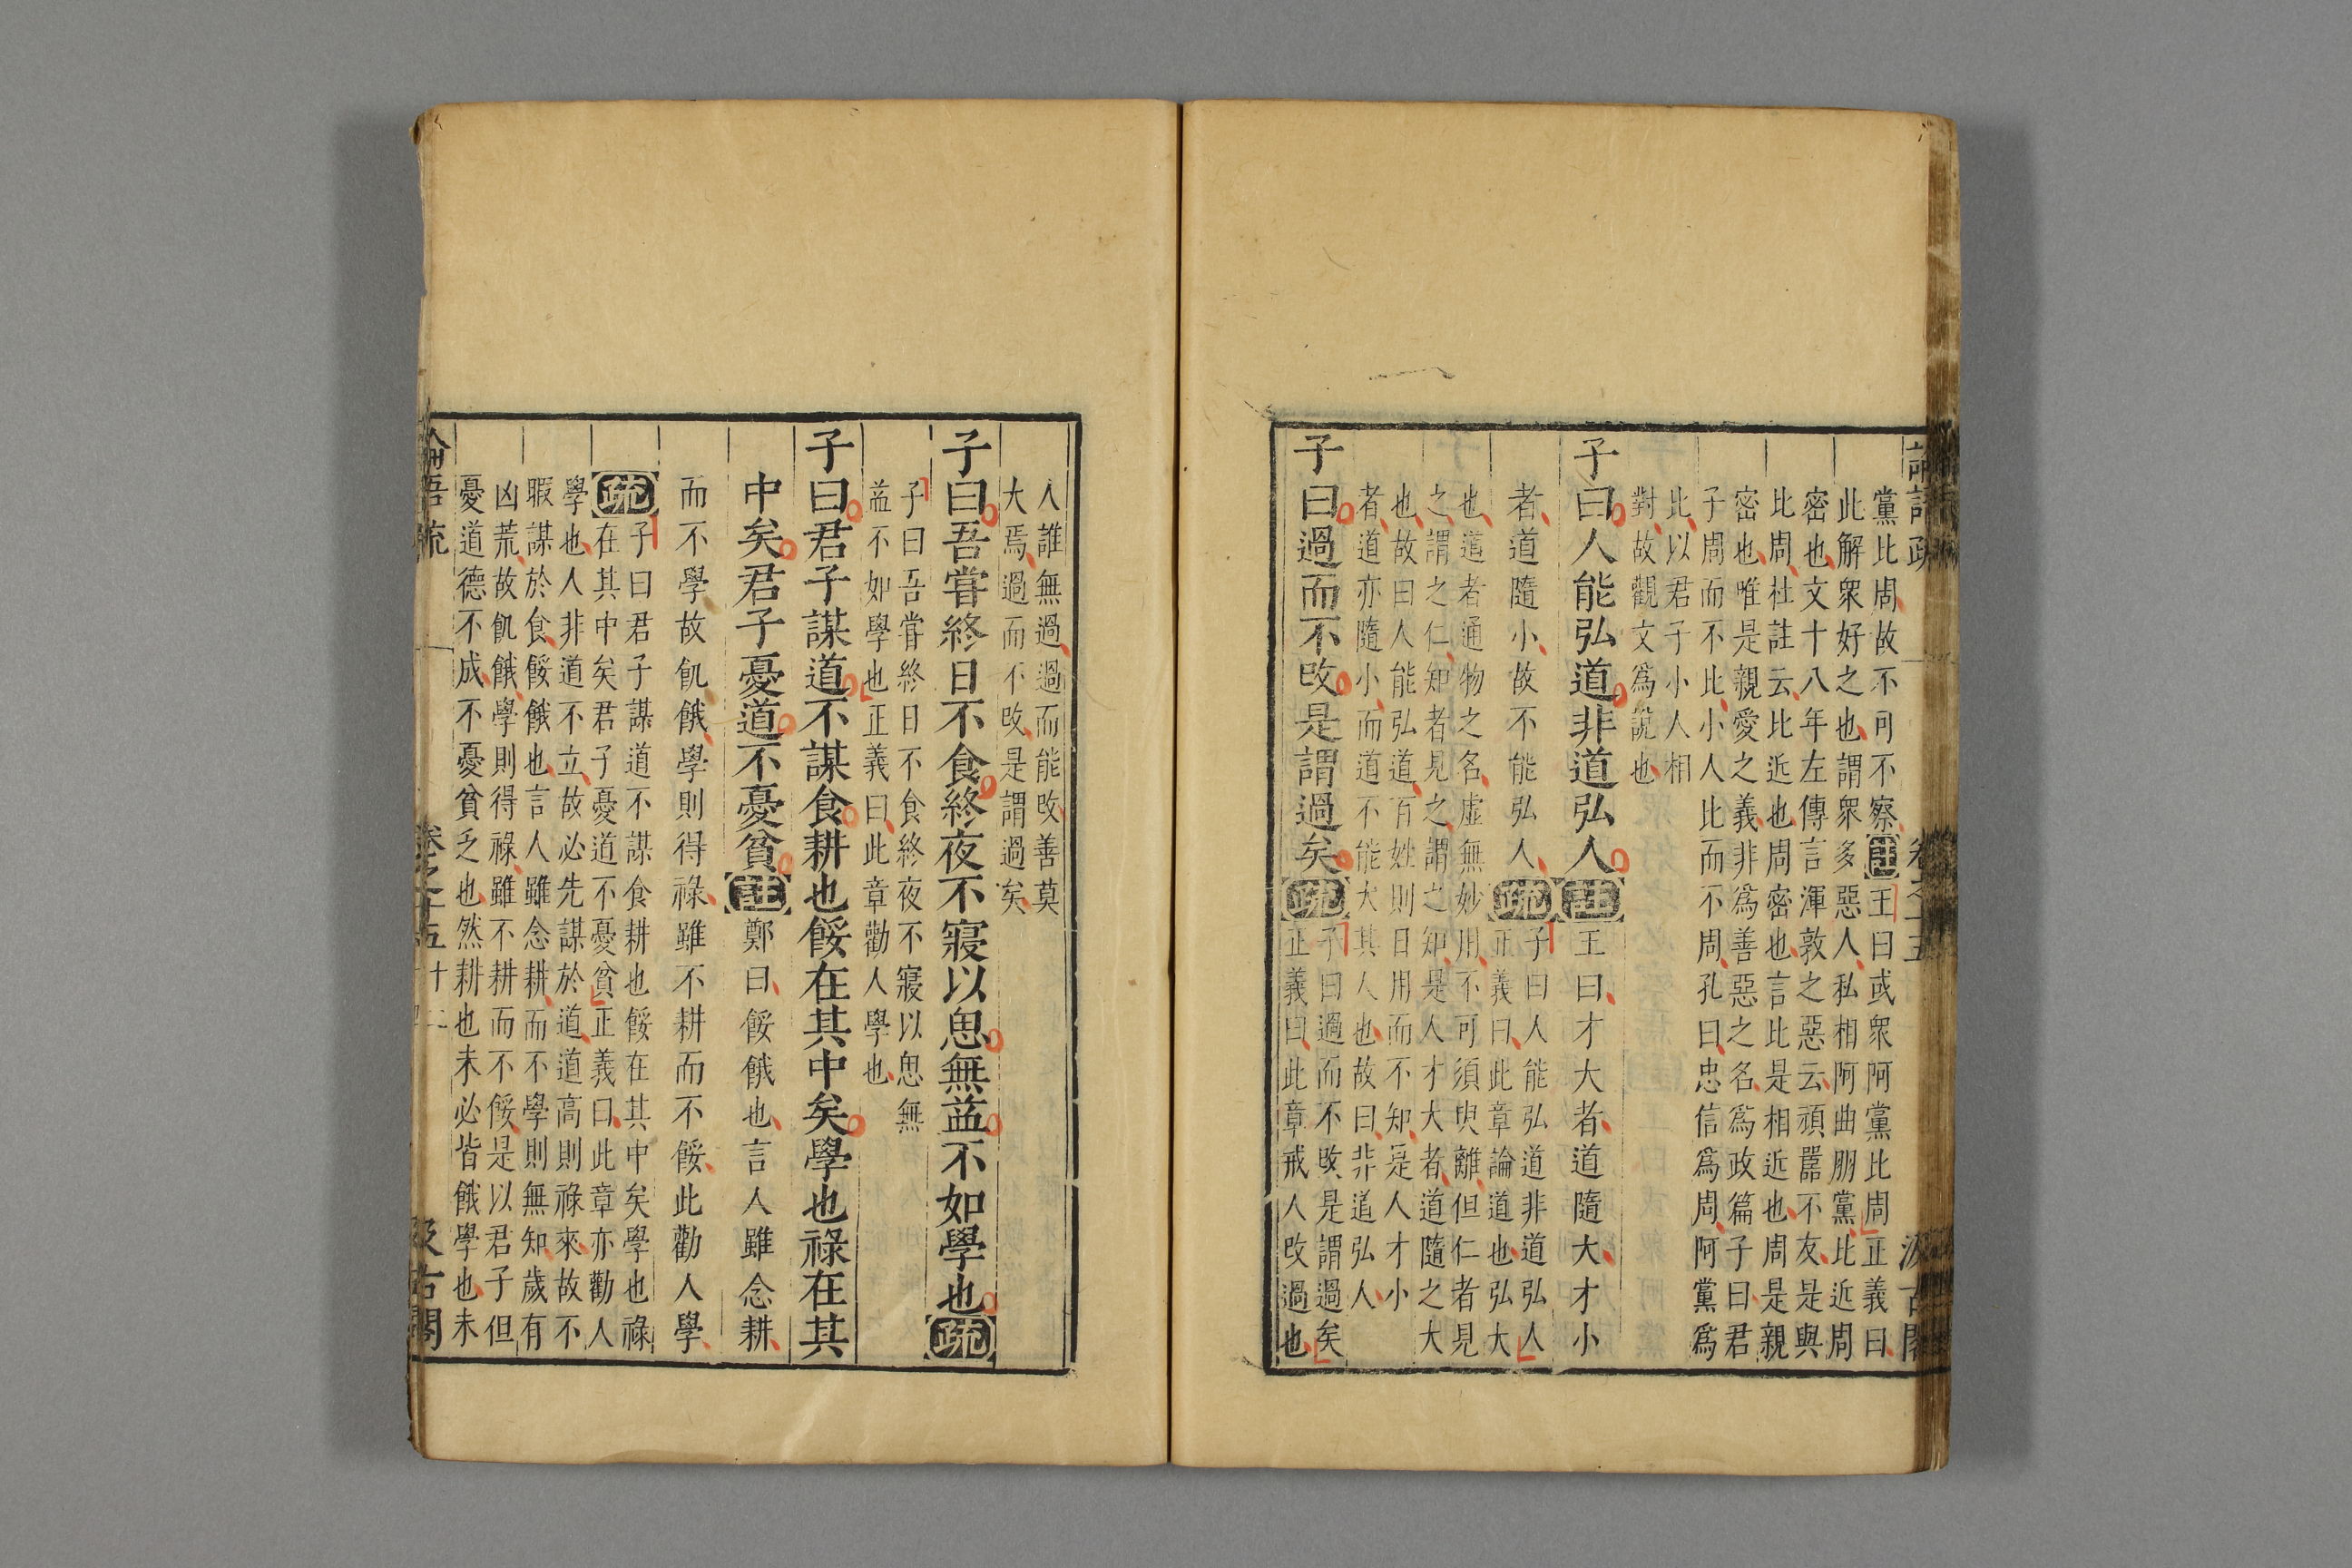 論語疏 卷之十五 汲古閣
黨比周故不可不察註王曰或衆阿黨比周正義曰
此解衆好之也謂衆多惡人私相阿曲朋黨比近周
密也文十八年左傳言渾敦之惡云頑嚚不友是與
比周杜註云比近也周密也言比是相近也周是親
密也唯是親愛之義非爲善惡之名爲政篇子曰君
子周而不比小人比而不周孔曰忠信爲周阿黨爲
此以君子小人相
對故觀文爲說也
子曰人能弘道非道弘人註王曰才大者道隨大才小
者道隨小故不能弘人疏子曰人能弘道非道弘人
正義曰此章論道也弘大
也道者通物之名虛無妙用不可須臾離但仁者見
之謂之仁知者見之謂之知是人才大者道隨之大
也故曰人能弘道百姓則日用而不知是人才小
者道亦隨小而道不能大其人也故曰非道弘人
子曰過而不改是謂過矣疏子曰過而不改是謂過矣
正義曰此章戒人改過也
人誰無過過而能改善莫
大焉過而不改是謂過矣
子曰吾嘗終日不食終夜不寢以思無益不如學也疏
子曰吾嘗終日不食終夜不寢以思無
益不如學也正義曰此章勸人學也
子曰君子謀道不謀食耕也餒在其中矣學也祿在其
中矣君子憂道不憂貧註鄭曰餒餓也言人雖念耕
而不學故飢餓學則得祿雖不耕而不餒此勸人學
疏子曰君子謀道不謀食耕也餒在其中矣學也祿
在其中矣君子憂道不憂貧正義曰此章亦勸人
學也人非道不立故必先謀於道道高則祿來故不
暇謀於食餒餓也言人雖念耕而不學則無知歲有
凶荒故飢餓學則得祿雖不耕而不餒是以君子但
憂道德不成不憂貧乏也然耕也未必皆餓學也未
論語疏 卷之十五 十二 汲古閣